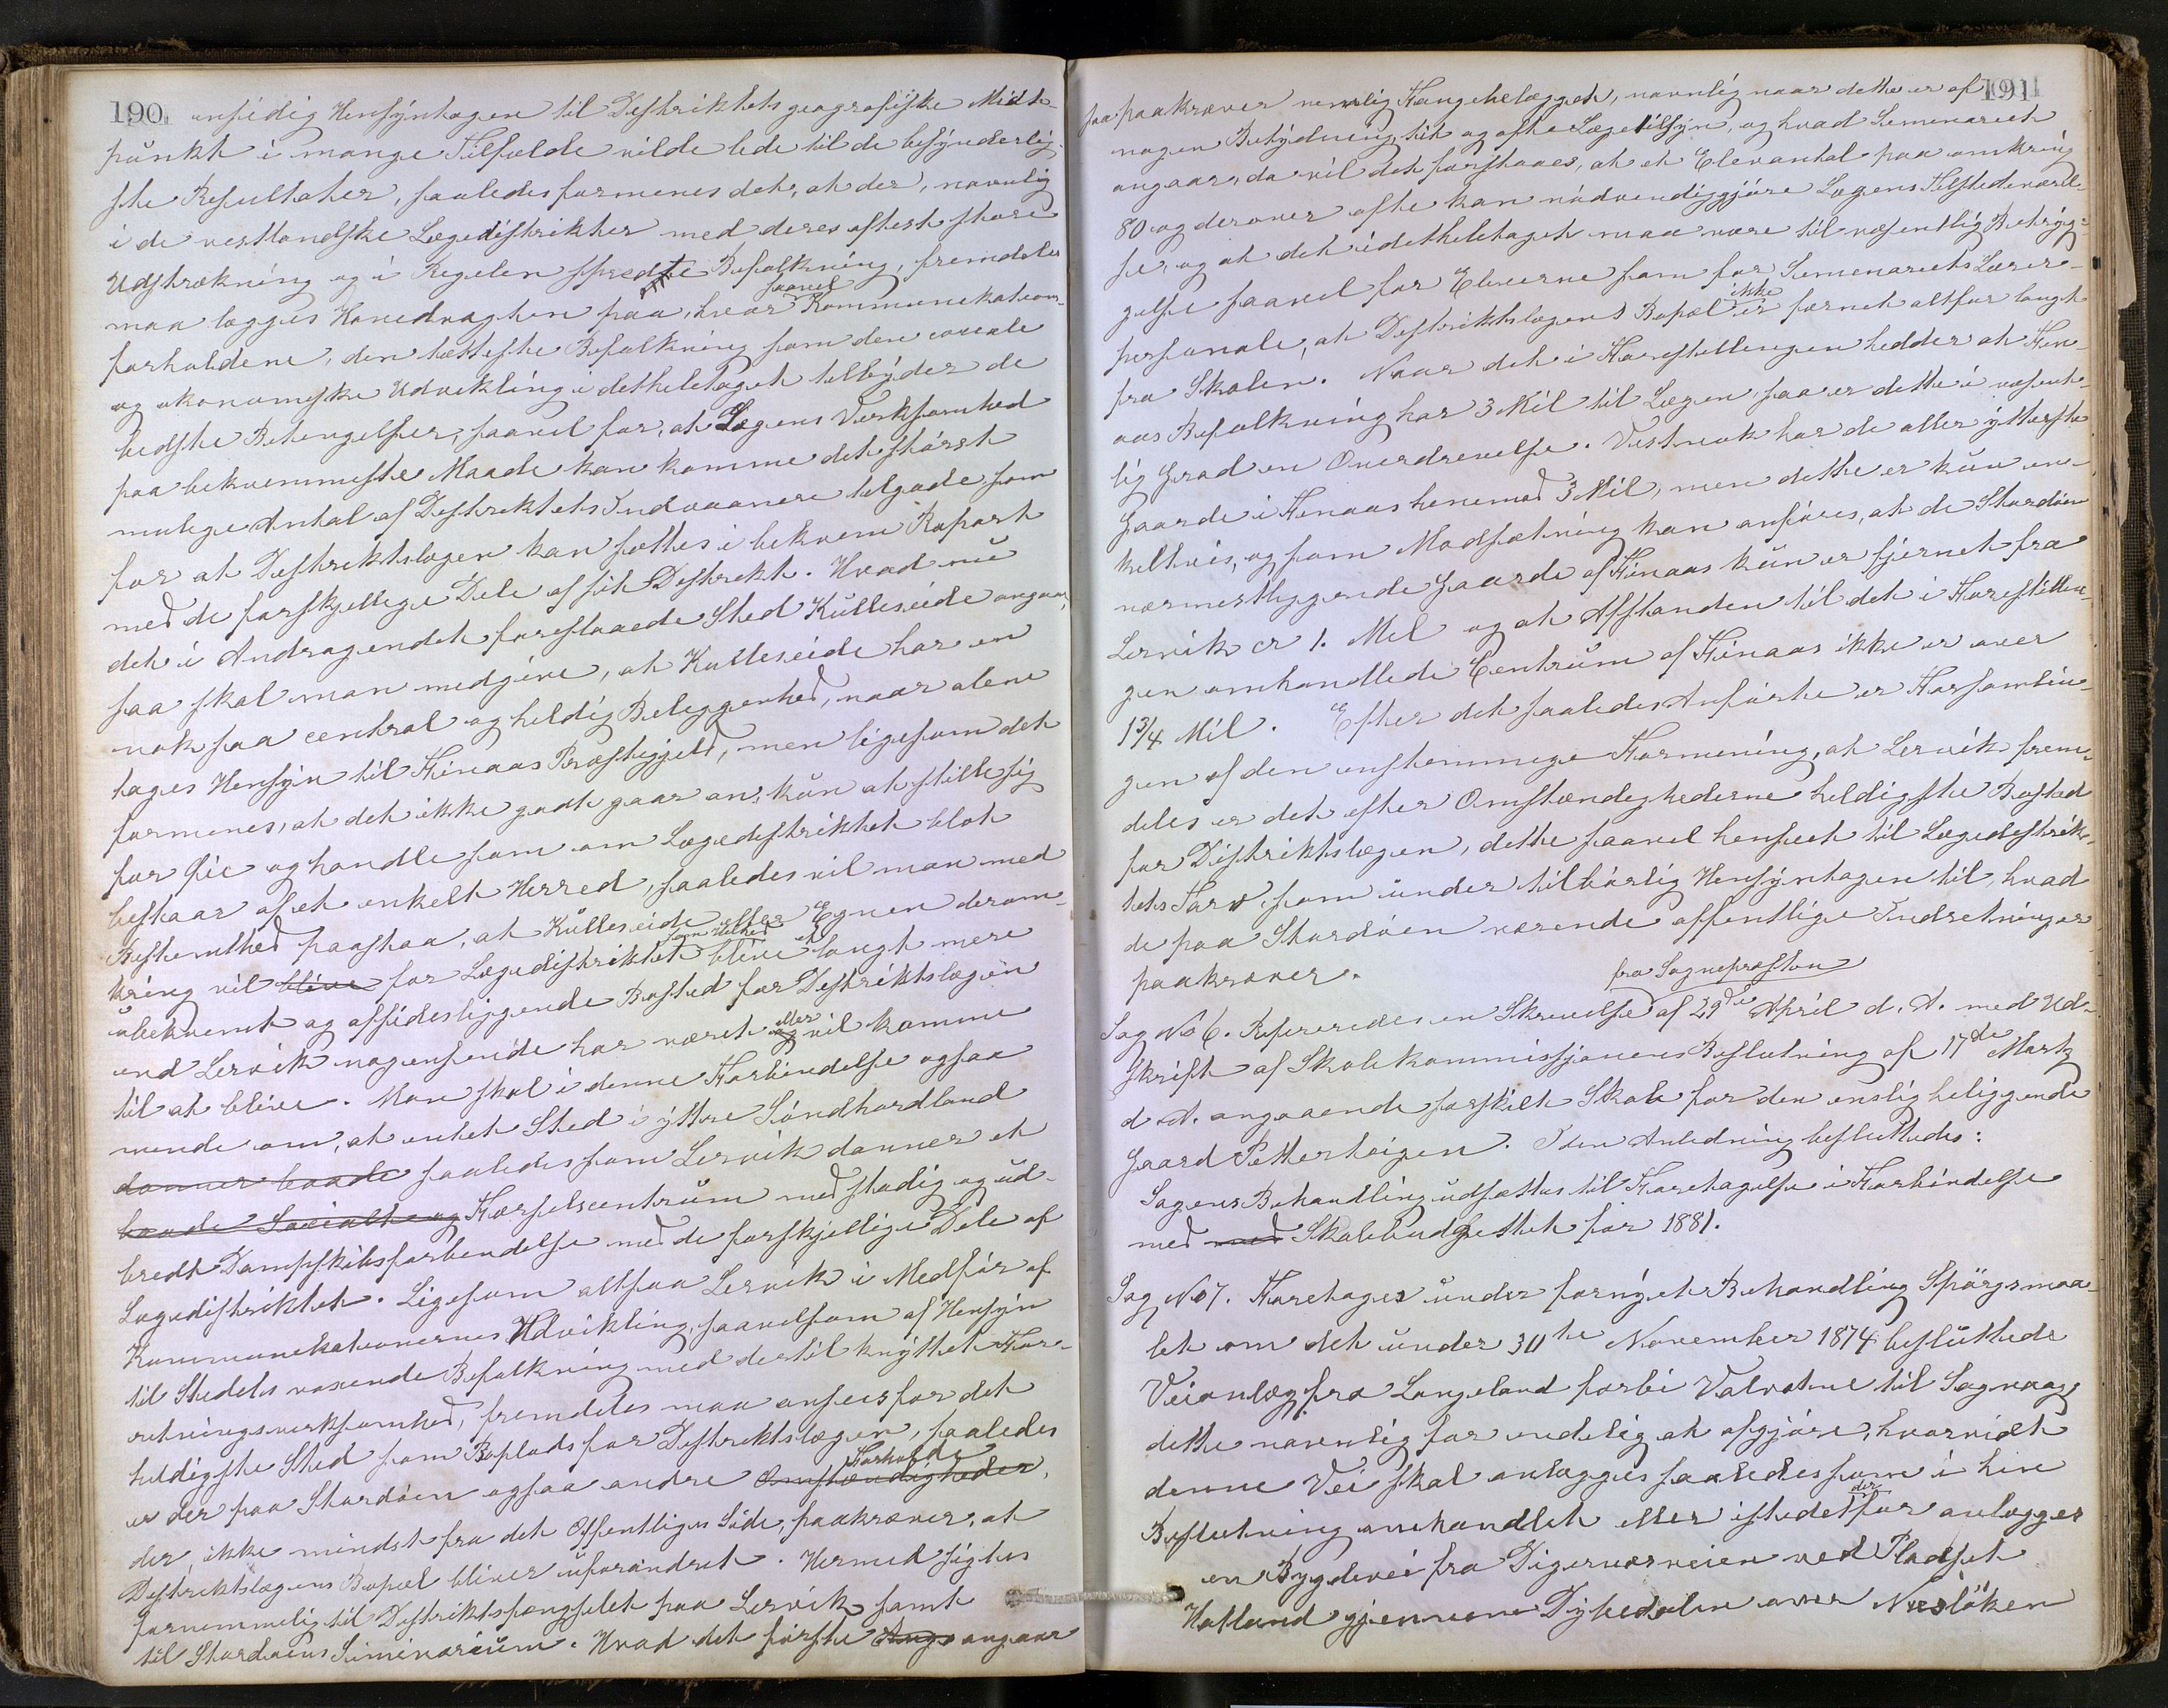 190.
ensidig Hensÿntagen til Distriktets geografiske Midt-
punkt i mange Tilfælde vilde lede til de besÿnderlig-
ste Resultater, saaledes formenes det, at der, navnlig
i de vestlandske Lægedistrikter med deres oftest store
Udstrækning og i Regelen spredte Befolkning, fremdeles
maa lægges Hovedvægten paa, hvor saavel Kommunikations-
forholdene, den tætteste Befolkning som den sociale
og økonomiske Udvikling i detheletaget tilbÿder de
bedste Betingelser, saavel for, at Lægens Virksomhed
paa bekvemmeste Maade kan komme det størst
mulige Antal af Distriktets Indvaanere tilgode som
for at Distriktslægen kan sættes i bekvem Raport
med de forskjellige Dele af sit Distrikt. Hvad nu
det i Andragendet foreslaaede Sted Kulleseide angaar,
saa skal man medgive, at Kulleseide har en
nok saa central og heldig Beliggenhed, naar alene
tages Hensÿn til Finaas Præstegjeld, men ligesom det
formenes, at det ikke godt gaar an, kun at stille sig
for sig og handle som om Lægedistriktet blot
bestaar af et enkelt Herred, saaledes vil man med
Bestemthed paastaa, at Kulleseide eller Egnen derom-
kring vil blive for Lægedistriktet som Helhed blive et langt mere
ubekvemt og afsidesliggende Bosted for Distriktslægen
end Lervik nogensinde har været og eller vil komme
til at blive. Man skal i denne Forbindelse ogsaa
minde om, at intet Sted i ÿttre Søndhordland
danner baade saaledes som Lervik danner et
baade Socialt og Færselscentrum med stadig og ud-
bredt Dampskibsforbindelse med de forskjellige Dele af
Lægedistriktet. Ligesom altsaa Lervik i Medfør af
Kommunikationernes Udvikling, saavelsom af Hensÿn
til Stedets voxende Befolkning med dertil knÿttet For-
retningsvirksomhed, fremdeles maa ansees for det
heldigste Sted som Boplads for Distriktslægen, saaledes
er der paa Stordøen ogsaa andre Omstændigheder, Forholde
der ikke mindst fra det Offentliges Side, paakræver, at
Distriktslægens Bopæl bliver uforandret. Hermed sigtes
fornemmelig til Distriktsfængselet paa Lervik samt
til Stordøens Seminarium. Hvad det første Ang angaar
191
saa paakræver nemlig Fangebelægget, navnlig naar dette er af
nogen Betÿdning tit og ofte Lægetilsÿn, og hvad Seminariet
angaar, da vil det forstaaes, at et Elevantal paa omkring
80 og derover ofte kan nødvendiggjøre Lægens Tilstedeværel-
se, og at det i detheletaget maa være til væsentlig Betrÿg-
gelse saavel for Eleverne som for Seminariets Lærer-
personale, at Distriktslægens Bopæl ikke er fjernet altfor langt
fra Skolen. Naar det i Forestillingen hedder at Fin-
aas Befolkning har 3 Mil til Lægen, saa er dette i væsent-
lig Grad en Overdrivelse. Vistnok har de aller ÿtterste
Gaarde i Finaas henimod 3 Mil, men dette er kun en-
keltvis, og som Modsætning kan anføres, at de Stordøen
nærmestliggende Gaarde af Finaas kun er fjernet fra
Lervik cr 1. Mil og at Afstanden til det i Forestillin-
gen omhandlede Centrum af Finaas ikke er over
1 3/4 Mil. Efter det saaledes Anførte er Forsamlin-
gen af den enstemmige Formening, at Lervik frem-
deles er det efter Omstændighederne heldigste Bosted
for Distriktslægen, dette saavel henseet til Lægedistrik-
tets Tarv, som under tilbørlig Hensÿntagen til, hvad
de paa Stordøen værende offentlige Indretninger
paakræver.
Sag No 6. Refereredes en Skrivelse fra Sognepræsten af 29de April d. A. med Ud-
skrift af Skolekommissjonens Beslutning af 17de Marts
d. A. angaaende særskilt Skole for den enslig beliggende
Gaard Petterteigen. I den Anledning besluttedes:
Sagens Behandling udsættes til Foretagelse i Forbindelse
med med Skolebudgettet for 1881.
Sag No 7. Foretages under fornÿet Behandling Spørgsmaa-
let om det under 30te November 1874 besluttede
Veianlæg fra Langeland forbi Valvatne til Sagvaag,
dette navnlig for endelig at afgjøre, hvorvidt
denne Vei skal anlægges saaledes som i hin
Beslutning omhandlet eller istedetfor der anlægges
en Bygdevei fra Digernesveien ved Pladset
Hatland gjennem Dÿbedalen over Næsløken